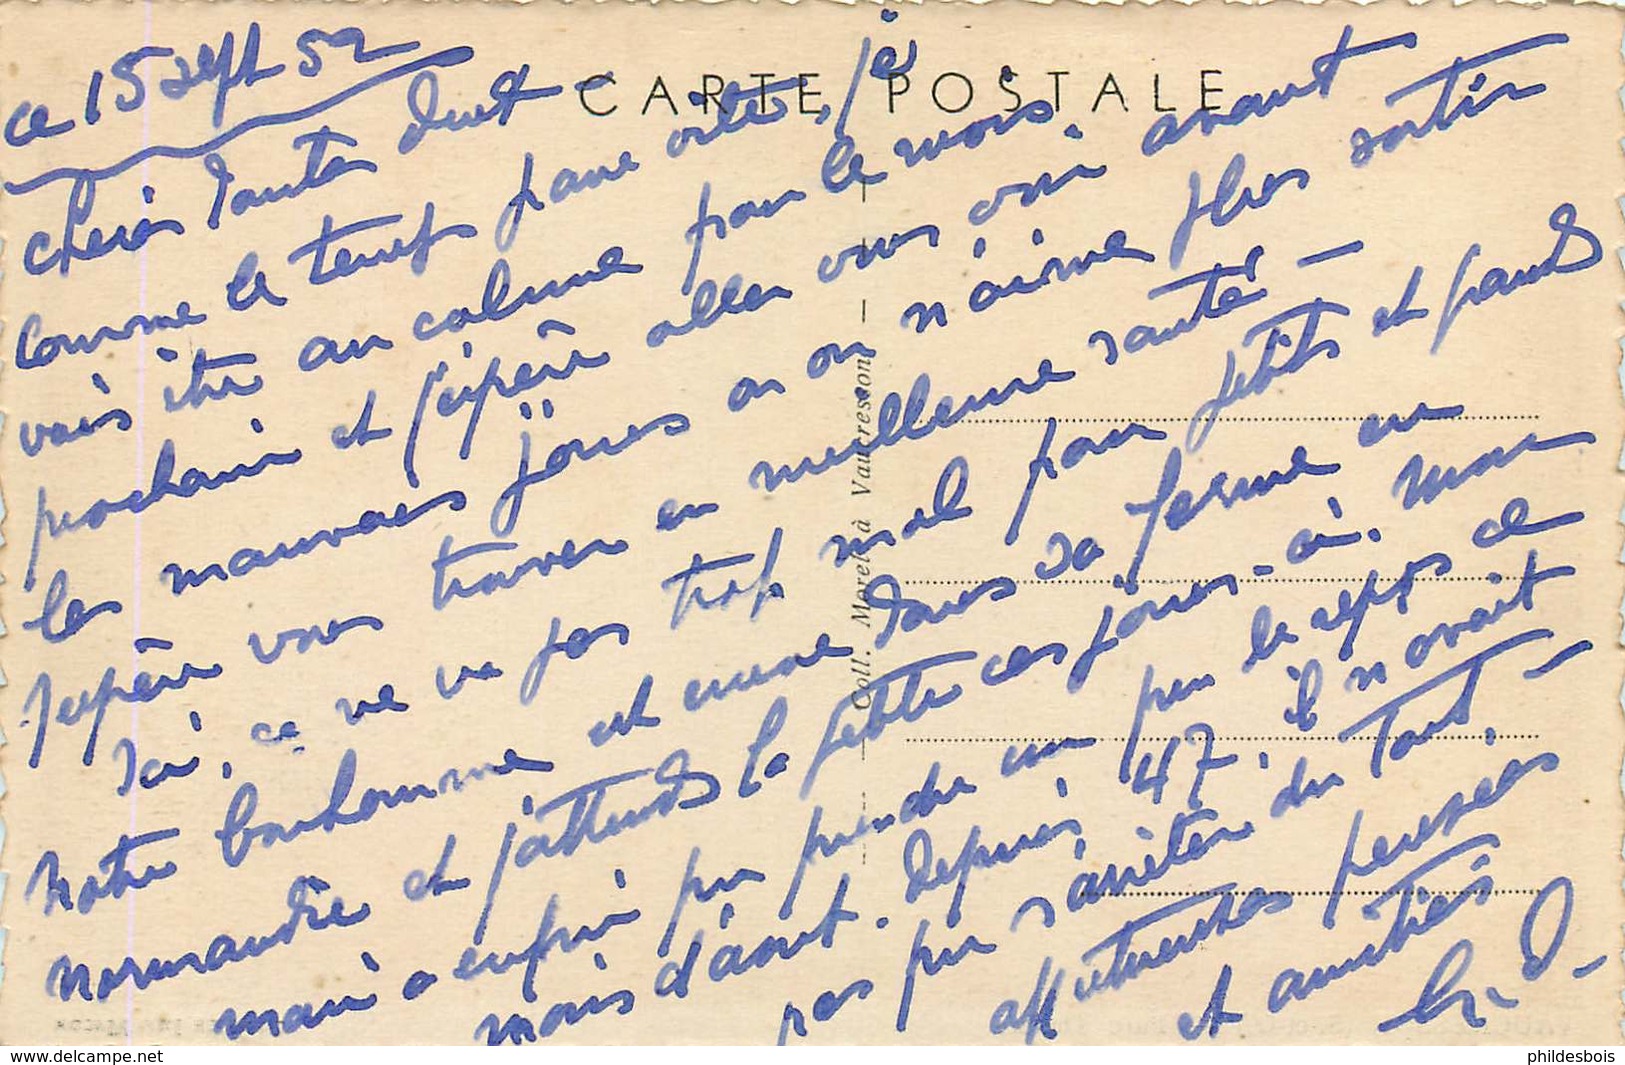 ce 15 sept 52
CARTE POSTALE
chères Tantes
comme le temps passe vite, je
vais être au calme pour le mois
prochain et j'espère aller vous voir avant
les mauvais jours où on n'aime plus sortir
J'espère vous trouver en meilleure santé -
Ici, ça ne va pas trop mal pour petits et grands
Notre bonhomme est encore dans sa ferme en
Normandie et j'attends la petite ces jours-ci. Mon
mari a enfin pu prendre un peu de repos ce
mois d'août. Depuis 47, il n'avait
pas pu s'arrêter du tout -
affectueuses pensées
et amitiés
Coll. Morel à Vaucresson
phildesbois
www.delcampe.net